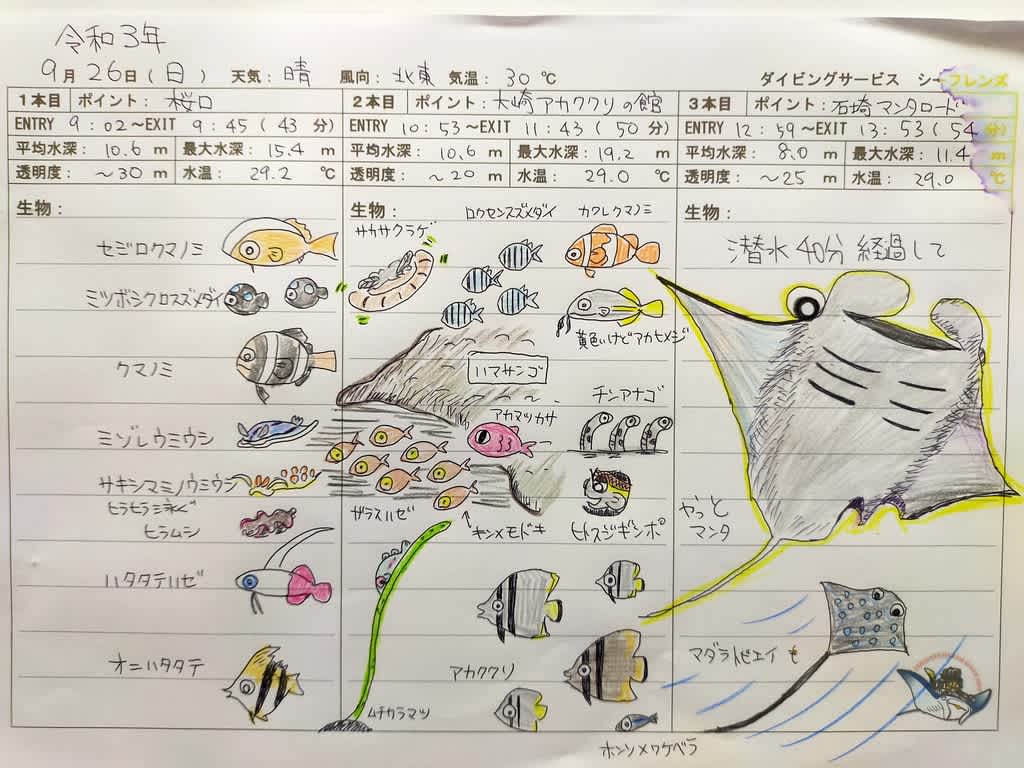 令和3年
9月26日(日) 天気: 晴 風向: 北東 気温: 30℃
ダイビングサービス シーフレンズ
1本目 ポイント: 桜口
ENTRY 9:02~EXIT 9:45(43分)
平均水深: 10.6 m 最大水深: 15.4 m
透明度: ~30 m 水温: 29.2 ℃
生物:
セジロクマノミ
ミツボシクロスズメダイ
クマノミ
ミゾレウミウシ
サキシマミノウミウシ
ヒラヒラ泳ぐ
ヒラムシ
ハタタテハゼ
オニハタタテ
2本目 ポイント: 大崎アカククリの館
ENTRY 10:53~EXIT 11:43(50分)
平均水深: 10.6 m 最大水深: 19.2 m
透明度: ~20 m 水温: 29.0 ℃
生物:
サカサクラゲ
ロクセンスズメダイ
カクレクマノミ
黄色いけどアカヒメジ
ハマサンゴ
アカマツカサ
チンアナゴ
ガラスハゼ
キンメモドキ
ヒトスジギンポ
アカククリ
ムチカラマツ
ホンソメワケベラ
3本目 ポイント: 石埼マンタロード
ENTRY 12:59~EXIT 13:53(54分)
平均水深: 8.0 m 最大水深: 11.4 m
透明度: ~25 m 水温: 29.0 ℃
生物:
潜水40分経過して
やっと
マンタ
マダラトビエイも